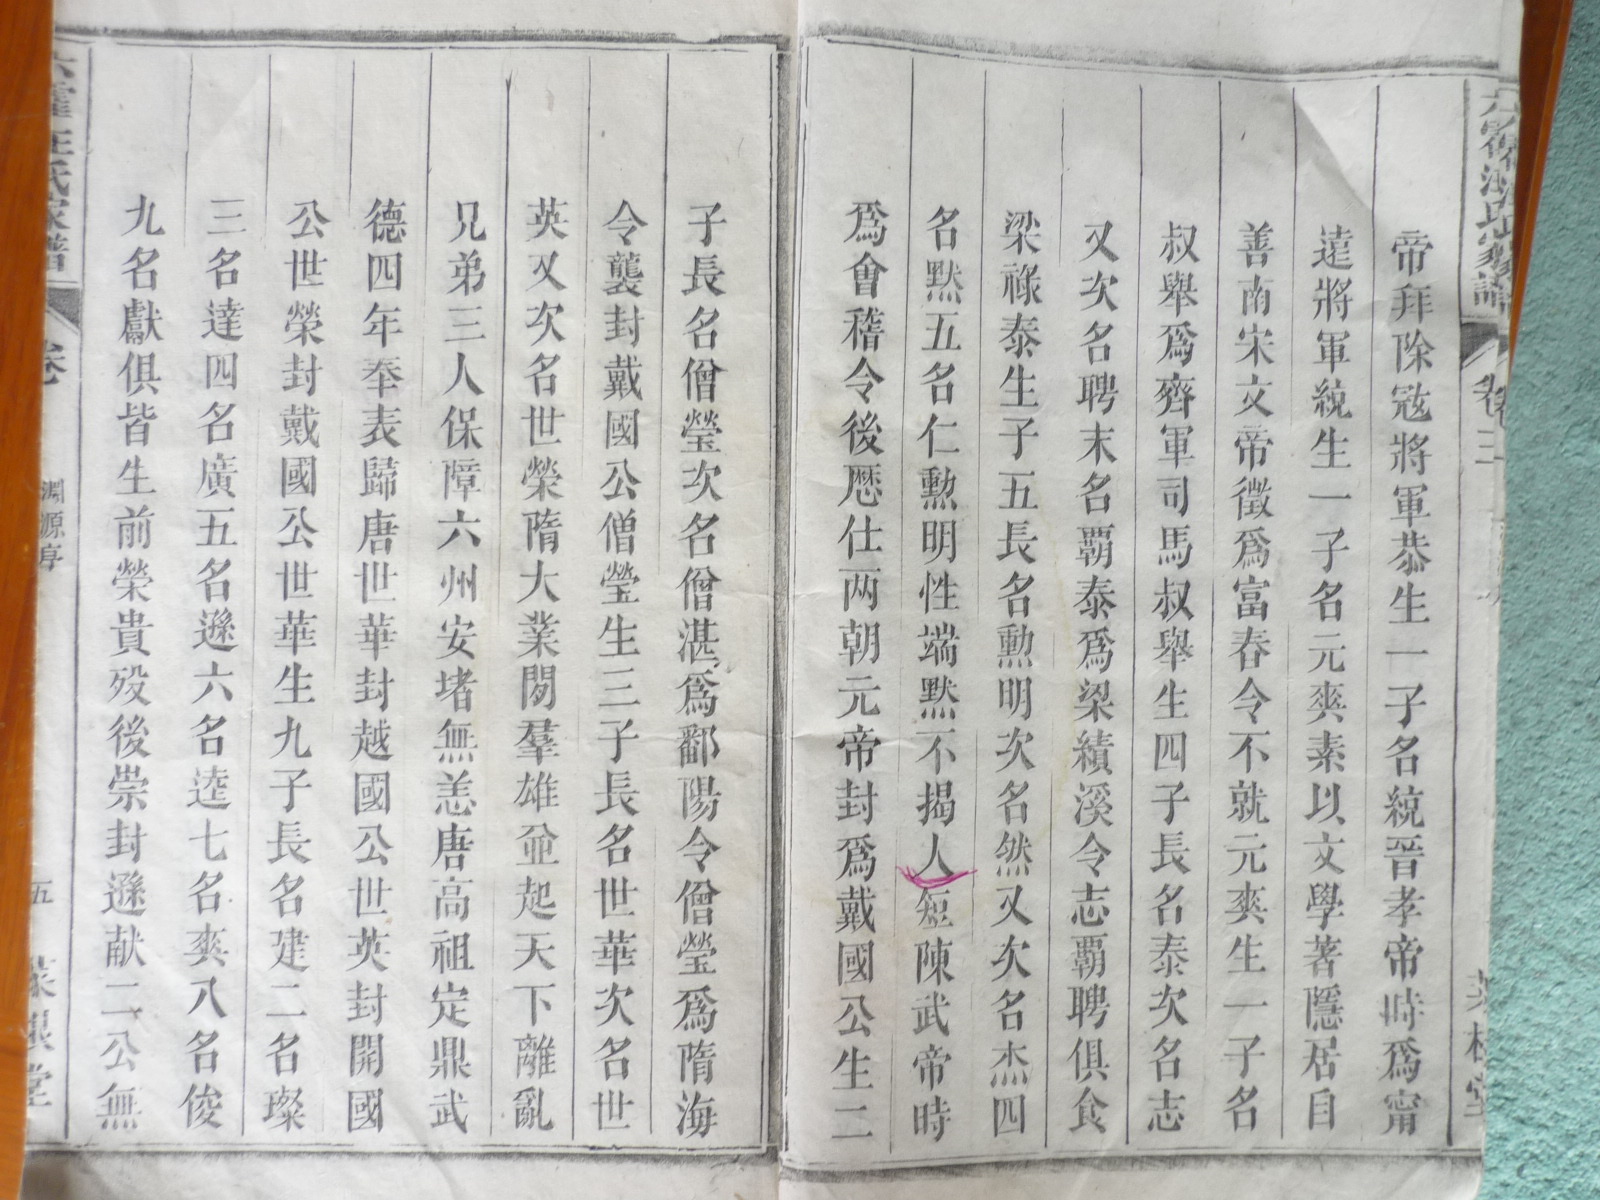 六霍汪氏家譜
卷三
帝拜除冦將軍恭生一子名統晉孝帝時爲甯
遠將軍統生一子名元爽素以文學著隱居自
善南宋文帝徵爲富春令不就元爽生一子名
叔舉爲齊軍司馬叔舉生四子長名泰次名志
又次名聘末名覇泰爲梁績溪令志覇聘俱食
梁祿泰生子五長名勲明次名然又次名杰四
名默五名仁勲明性端默不揭人短陳武帝時
爲會稽令後歴仕两朝元帝封爲戴國公生二
子長名僧瑩次名僧湛爲鄱陽令僧瑩爲隋海
令襲封戴國公僧瑩生三子長名世華次名世
英又次名世榮隋大業間羣雄並起天下離亂
兄弟三人保障六州安堵無恙唐高祖定鼎武
德四年奉表歸唐世華封越國公世英封開國
公世榮封戴國公世華生九子長名建二名璨
三名達四名廣五名遜六名逵七名爽八名俊
九名獻俱皆生前榮貴殁後崇封遜献二公無
六霍汪氏家譜
卷
淵源序
五